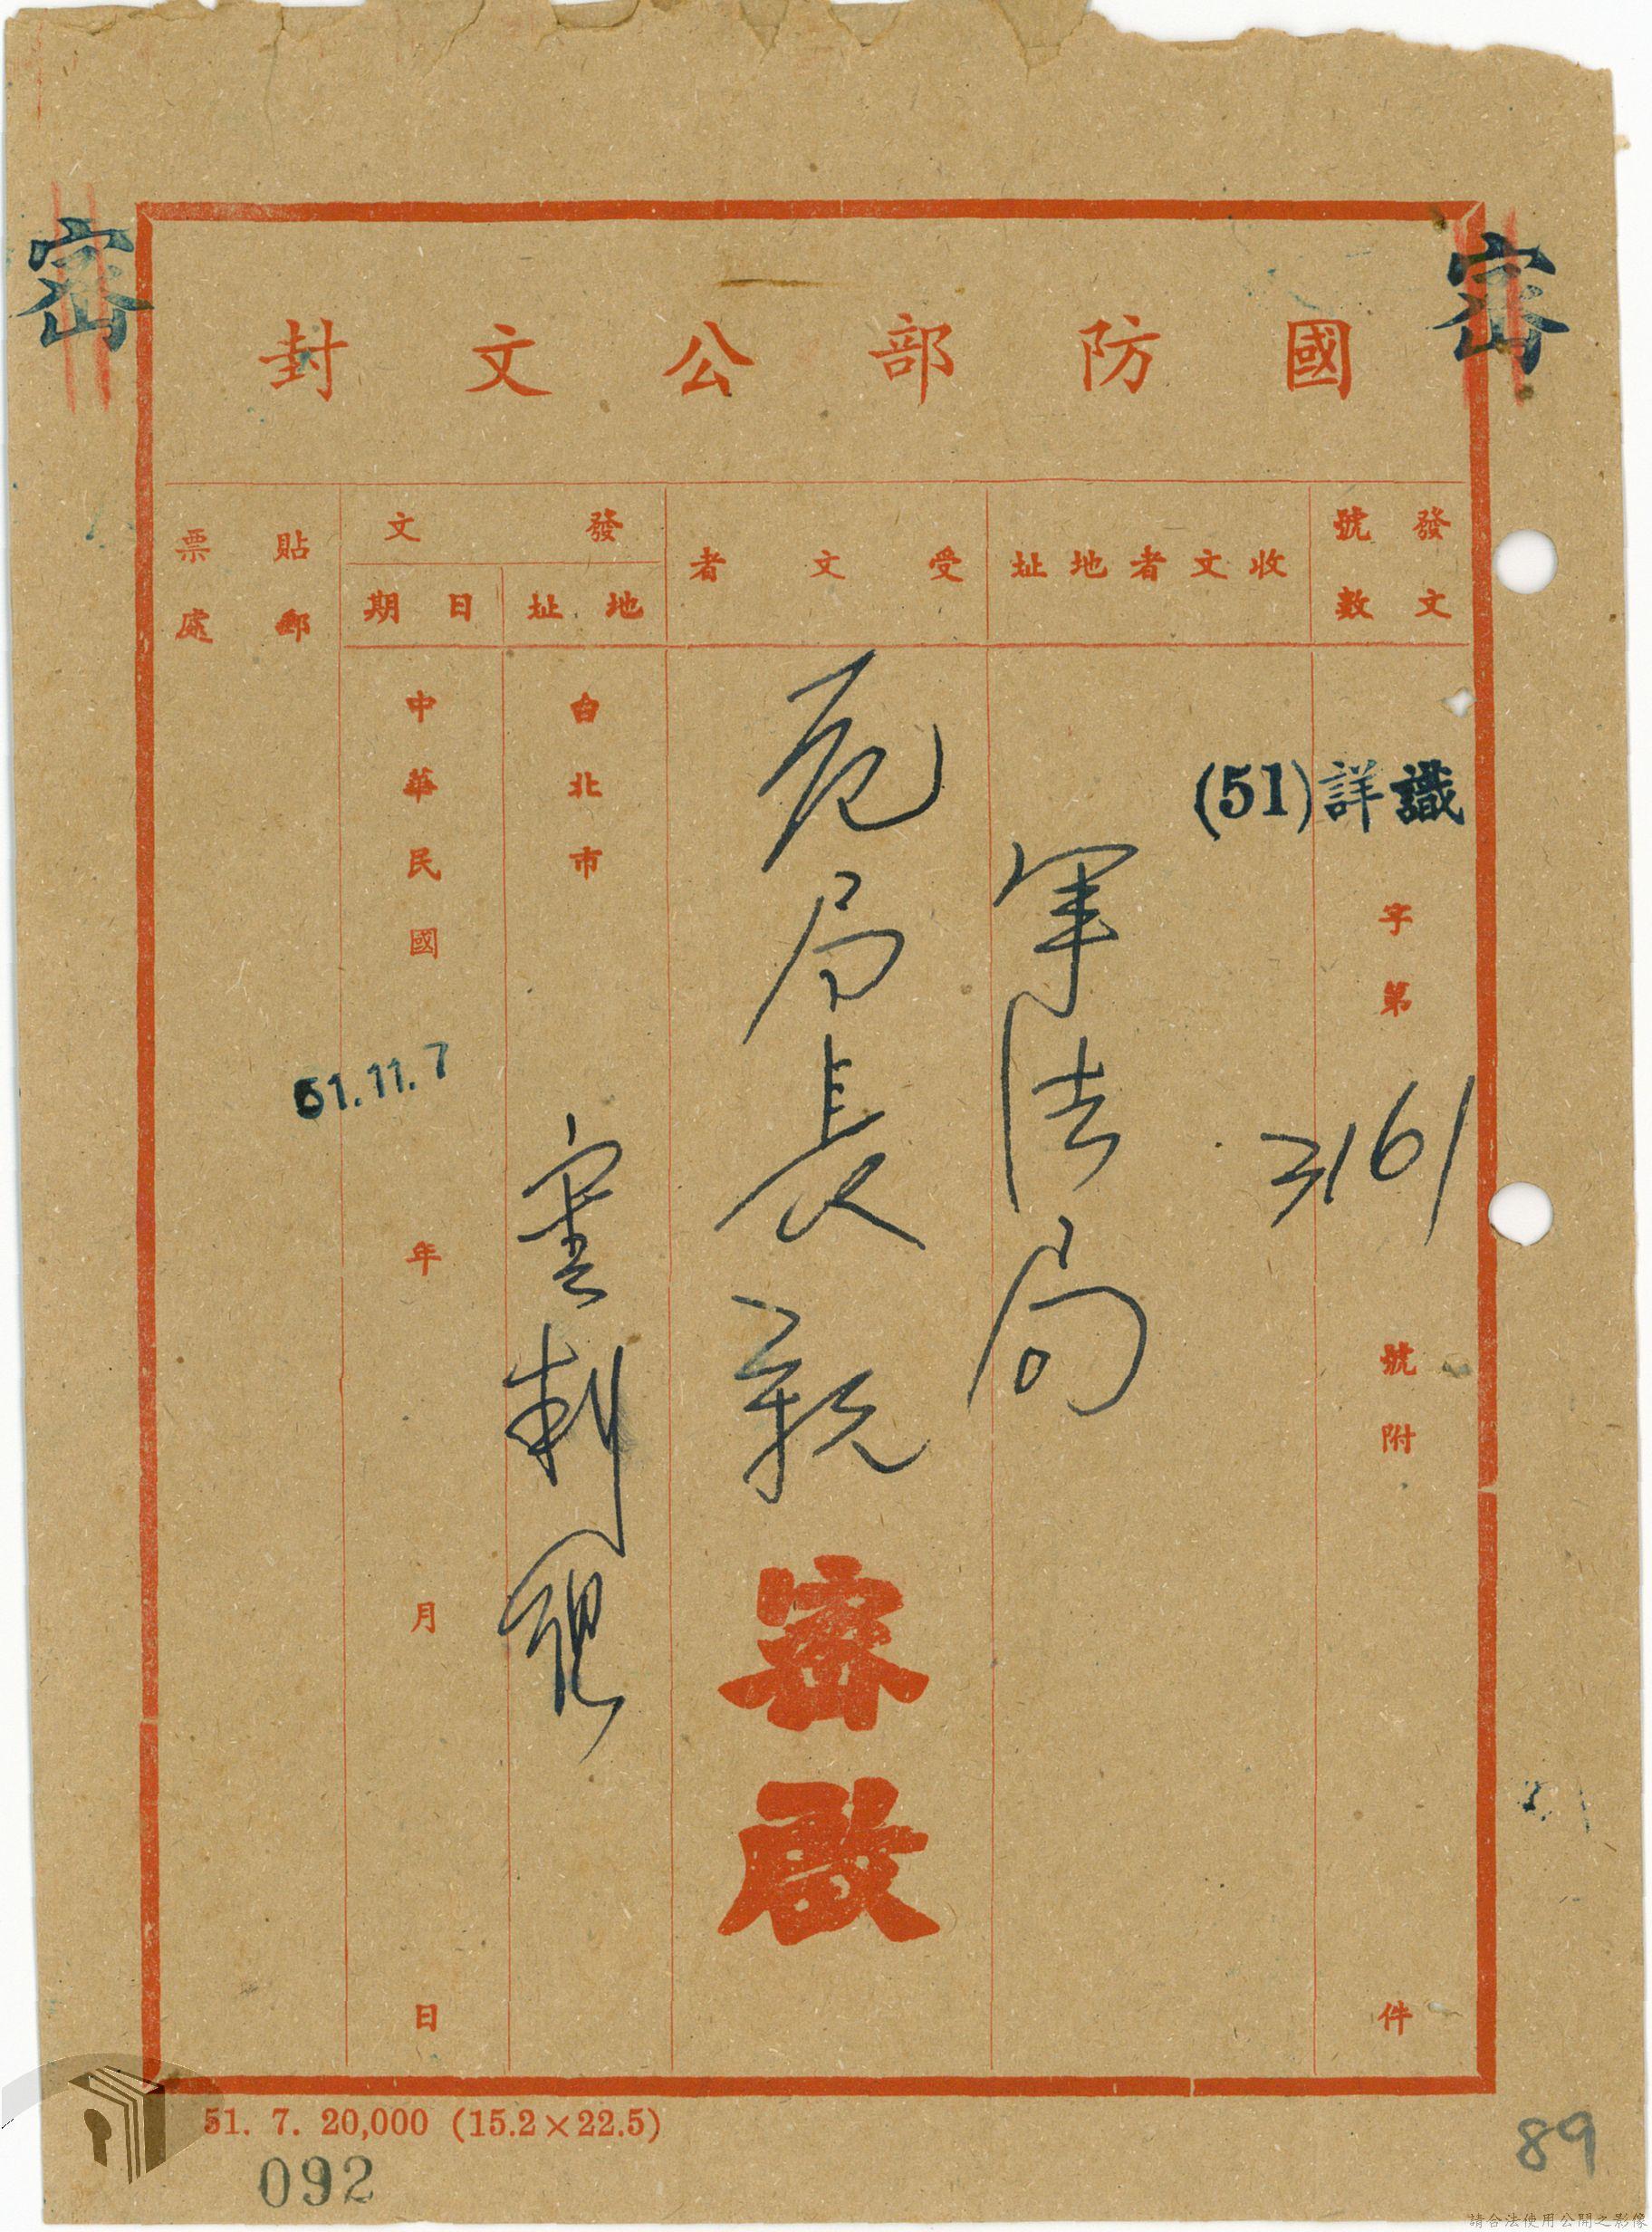 密
密
國防部公文封
發文號數
收文者地址
受文者
發文
地址
日期
貼郵票處
(51)詳識
字第
3161
號附
件
軍法局
局長親
密啟
台北市
中華民國
51.11.7
年
月
日
51. 7. 20,000 (15.2×22.5)
092
89
請合法使用公開之影像